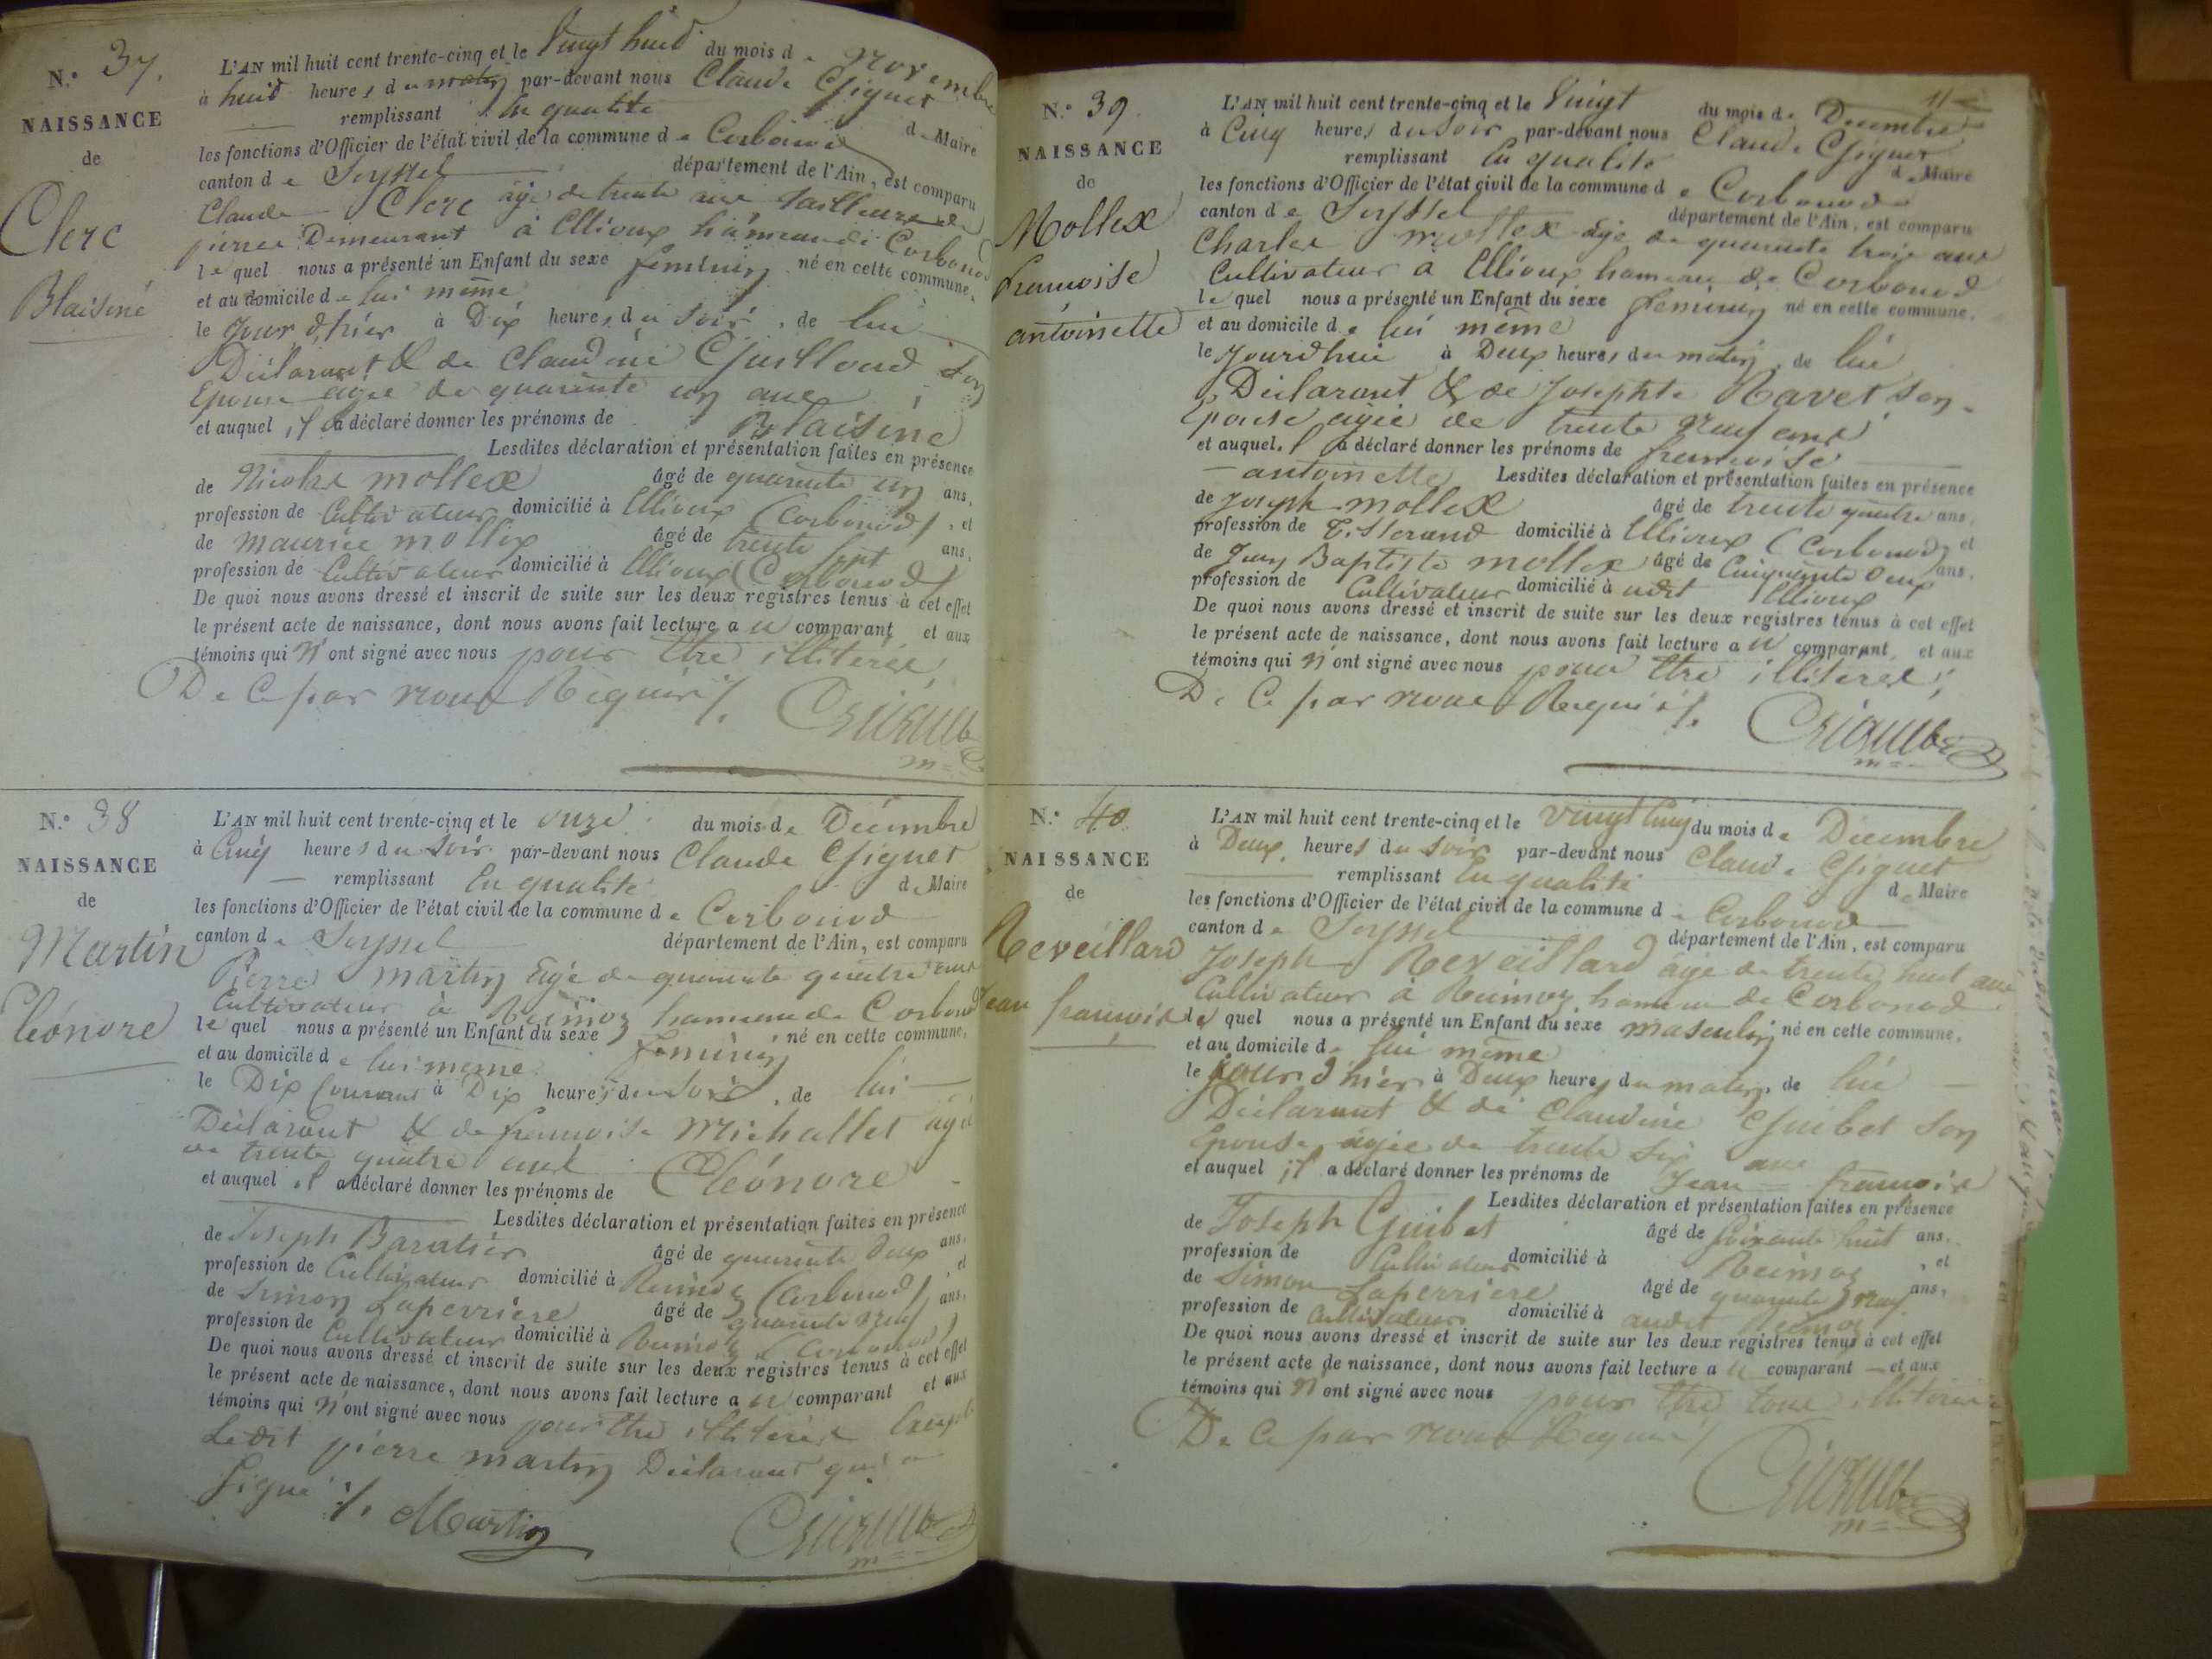 N.° 37.
NAISSANCE
de
Clerc
Blaisine
L'AN mil huit cent trente-cinq et le Vingt huit du mois de Novembre
à huit heures du matin par-devant nous Claude Giguet
remplissant En qualité de Maire
les fonctions d'Officier de l'état civil de la commune de Corbonod
canton de Seyssel département de l'Ain, est comparu
Claude Clerc âgé de trente ans tailleur de
pierres Demeurant à Ellioux hameau de Corbonod
lequel nous a présenté un Enfant du sexe féminin né en cette commune,
et au domicile de lui même
le Jour d'hier à Dix heures du Soir, de lui
Déclarant & de Claudine Guilloud Son
Epouse âgée de quarente un ans
et auquel il a déclaré donner les prénoms de Blaisine
Lesdites déclaration et présentation faites en présence
de Nicolas mollex âgé de quarente un ans,
profession de Cultivateur domicilié à Ellioux (Corbonod), et
de maurice mollex âgé de trente Sept ans,
profession de Cultivateur domicilié à Ellioux (Corbonod)
De quoi nous avons dressé et inscrit de suite sur les deux registres tenus à cet effet
le présent acte de naissance, dont nous avons fait lecture au comparant et aux
témoins qui n'ont signé avec nous pour être illiterés,
De Ce par nous Requis /.
N.° 38
NAISSANCE
de
Martin
Cléonore
L'AN mil huit cent trente-cinq et le onze du mois de Décembre
à Cinq heures du Soir par-devant nous Claude Giguet
remplissant En qualité de Maire
les fonctions d'Officier de l'état civil de la commune de Corbonod
canton de Seyssel département de l'Ain, est comparu
Pierre martin âgé de quarente quatre ans
Cultivateur à Reimoz hameau de Corbonod
lequel nous a présenté un Enfant du sexe féminin né en cette commune,
et au domicile de lui même
le Dix Courant à Dix heures du Soir, de lui
Déclarant & de francoise Michallet âgée
de trente quatre ans
et auquel il a déclaré donner les prénoms de Cléonore
Lesdites déclaration et présentation faites en présence
de Joseph Baratier âgé de quarente deux ans,
profession de Cultivateur domicilié à Reimoz (Corbonod), et
de Simon Laperriere âgé de quarente neuf ans,
profession de Cultivateur domicilié à Reimoz (Corbonod)
De quoi nous avons dressé et inscrit de suite sur les deux registres tenus à cet effet
le présent acte de naissance, dont nous avons fait lecture au comparant et aux
témoins qui n'ont signé avec nous pour être illiterés Excepté
Ledit pierre martin Déclarant qui a
Signé /. Martin
N.° 39.
NAISSANCE
de
Mollex
francoise
antoinette
L'AN mil huit cent trente-cinq et le Vingt du mois de Decembre
à Cinq heures du soir par-devant nous Claude Giguet
remplissant En qualité de Maire
les fonctions d'Officier de l'état civil de la commune de Corbonod
canton de Seyssel département de l'Ain, est comparu
Charles mollex âgé de quarente trois ans
Cultivateur à Ellioux hameau de Corbonod
lequel nous a présenté un Enfant du sexe feminin né en cette commune,
et au domicile de lui même
le Jourdhui à Deux heures du matin, de lui
Déclarant & de Josephte Ravet son
Epouse agée de trente neuf ans
et auquel il a déclaré donner les prénoms de francoise
antoinette Lesdites déclaration et présentation faites en présence
de Joseph mollex âgé de trente quatre ans,
profession de Tisserand domicilié à Ellioux (Corbonod) et
de Jean Baptiste mollex âgé de Cinquante deux ans,
profession de Cultivateur domicilié à udit Ellioux
De quoi nous avons dressé et inscrit de suite sur les deux registres tenus à cet effet
le présent acte de naissance, dont nous avons fait lecture au comparant et aux
témoins qui n'ont signé avec nous pour être illiterés,
De Ce par nous Requis /.
N.° 40
NAISSANCE
de
Reveillard
Jean francois
L'AN mil huit cent trente-cinq et le vingt Cinq du mois de Décembre
à Deux heures du Soir par-devant nous Claude Giguet
remplissant En qualité de Maire
les fonctions d'Officier de l'état civil de la commune de Corbonod
canton de Seyssel département de l'Ain, est comparu
Joseph Reveillard âgé de trente huit ans
Cultivateur à Reimoz hameau de Corbonod
lequel nous a présenté un Enfant du sexe masculin né en cette commune,
et au domicile de lui même
le jour d'hier à Deux heures du matin, de lui
Déclarant & de Claudine Guibet son
Epouse âgée de trente six ans
et auquel il a déclaré donner les prénoms de Jean francois
Lesdites déclaration et présentation faites en présence
de Joseph Guibet âgé de soixante huit ans,
profession de Cultivateur domicilié à Reimoz, et
de Simon Laperriere âgé de quarente neuf ans,
profession de Cultivateur domicilié à audit Reimoz
De quoi nous avons dressé et inscrit de suite sur les deux registres tenus à cet effet
le présent acte de naissance, dont nous avons fait lecture au comparant et aux
témoins qui n'ont signé avec nous pour être tous illiterés
De Ce par nous Requis /